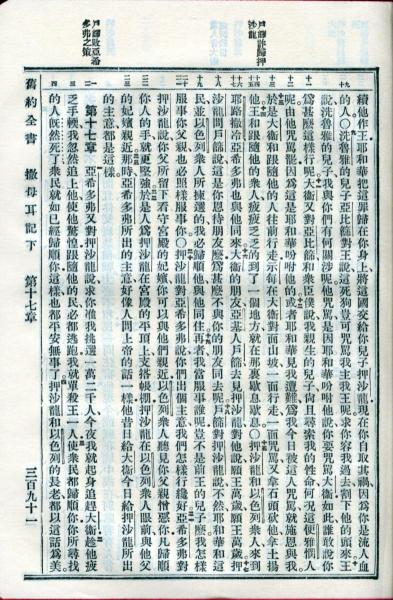 戶篩詐歸押
沙龍
戶篩敗亞希
多弗之策
續他作王耶和華把這罪歸在你身上將這國交給你兒子押沙龍現在你自取其禍因為你是流人血
的人〇洗魯雅的兒子亞比篩對王說這死狗豈可咒罵我主我王呢求你容我過去割下他的頭來王
說洗魯雅的兒子我與你們有何關涉呢他咒罵是因耶和華吩咐他說你要咒罵大衛如此誰敢說你
為甚麼這樣行呢大衛又對亞比篩和眾臣僕說我親生的兒子尚且尋索我的性命何況這便雅憫人
呢由他咒罵罷因為這是耶和華吩咐他的或者耶和華見我遭難為我今日被這人咒罵就施恩與我
於是大衛和跟隨他的人往前行走示每在大衛對面山坡一面行走一面咒罵又拿石頭砍他拿土揚
他王和跟隨他的眾人疲疲乏乏的到了一個地方就在那裏歇息歇息〇押沙龍和以色列眾人來到
耶路撒冷亞希多弗也與他同來大衛的朋友亞基人戶篩去見押沙龍對他說願王萬歲願王萬歲押
沙龍問戶篩說這是你恩待朋友麼為甚麼不與你的朋友同去呢戶篩對押沙龍說不然耶和華和這
民並以色列眾人所揀選的我必歸順他與他同住再者我當服事誰呢豈不是前王的兒子麼我怎樣
服事你父親也必照樣服事你〇押沙龍對亞希多弗說你們出個主意我們怎樣行纔好亞希多弗對
押沙龍說你父所留下看守宮殿的妃嬪你可以與他們親近以色列眾人聽見你父親憎惡你凡歸順
你人的手就更堅強於是人為押沙龍在宮殿的平頂上支搭帳棚押沙龍在以色列眾人眼前與他父
的妃嬪親近那時亞希多弗所出的主意好像人問上帝的話一樣他昔日給大衛今日給押沙龍所出
的主意都是這樣
第十七章 亞希多弗又對押沙龍說求你准我挑選一萬二千人今夜我就起身追趕大衛趁他疲
乏手輭我忽然追上他使他驚惶跟隨他的民必都逃跑我就單殺王一人使眾民都歸順你你所尋找
的人既然死了眾民就如已經歸順你這樣也都平安無事了押沙龍和以色列的長老都以這話為美
舊約全書 撒母耳記下 第十七章 三百九十一